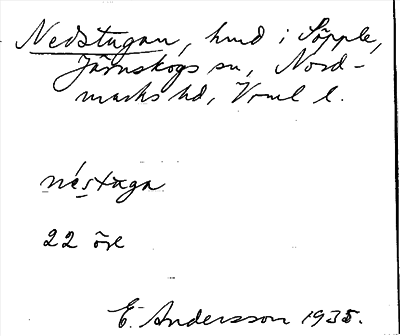 Nedstugan, hmd i Söpple,
Järnskogs sn, Nord-
marks hd, Vrml l.
néstæga
22 öre
E. Andersson 1935.